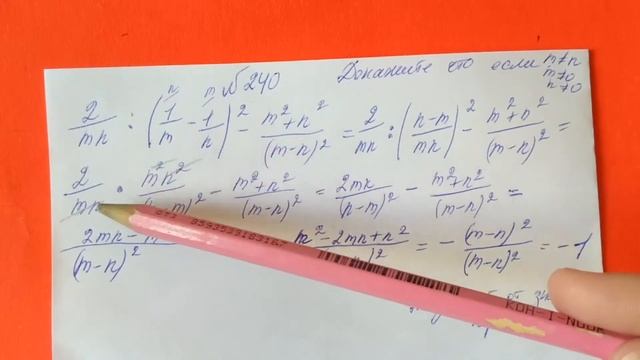 № 240 Докажите что если m≠n
m≠0
n≠0
2/mn : (1/m - 1/n)² - (m²+n²)/(m-n)² = 2/mn : ((n-m)/mn)² - (m²+n²)/(m-n)² =
2/mn · m²n²/(n-m)² - (m²+n²)/(m-n)² = 2mn/(n-m)² - (m²+n²)/(m-n)² =
2mn - /(m-n)² m²-2mn+n² = - (m-n)²/(m-n)² = -1
KOH-I-NOOR